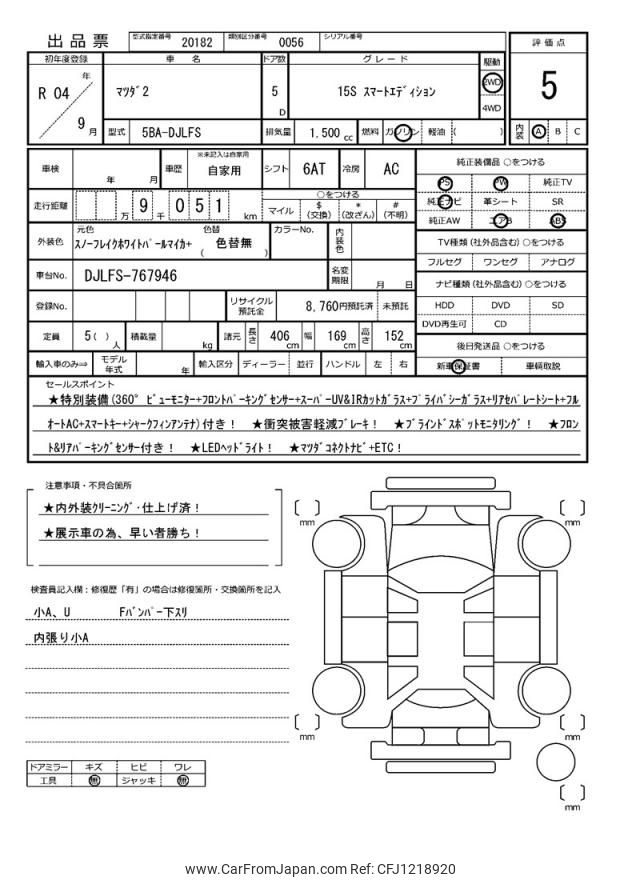 出品票 型式指定番号 20182 類別区分番号 0056 シリアル番号
初年度登録 車名 ドア数 グレード 駆動 評価点
R 04 年 9 月 マツダ2 5 D 15S スマートエディション 2WD 4WD 5
型式 5BA-DJLFS 排気量 1.500 cc 燃料 ガソリン 軽油 ( ) 内装 A B C
車検 年 月 車歴 ※未記入は自家用 自家用 シフト 6AT 冷房 AC 純正装備品 ○をつける
PS PW 純正TV
走行距離 万 9 千 0 5 1 km ○をつける
マイル $(交換) *(改ざん) #(不明) 純正ナビ 革シート SR
純正AW エアB ABS
外装色 元色 スノーフレイクホワイトパールマイカ+ 色替 ( 色替無 ) カラーNo. 内装色
TV種類 (社外品含む) ○をつける
フルセグ ワンセグ アナログ
車台No. DJLFS-767946 名変期限 月 日
ナビ種類 (社外品含む) ○をつける
登録No. リサイクル預託金 8,760円預託済 未預託 HDD DVD SD
DVD再生可 CD
定員 5 ( ) 人 積載量 kg 諸元 長さ 406 cm 幅 169 cm 高さ 152 cm
後日発送品 ○をつける
輸入車のみ⇒ モデル年式 年 輸入区分 ディーラー 並行 ハンドル 左 右 新車保証書 車輌取説
セールスポイント
★特別装備(360° ビューモニター+フロントパーキングセンサー+スーパーUV&IRカットガラス+プライバシーガラス+リアセパレートシート+フル
オートAC+スマートキー+シャークフィンアンテナ)付き! ★衝突被害軽減ブレーキ! ★ブラインドスポットモニタリング! ★フロン
ト&リアパーキングセンサー付き! ★LEDヘッドライト! ★マツダコネクトナビ+ETC!
注意事項・不具合箇所
★内外装クリーニング・仕上げ済!
★展示車の為、早い者勝ち!
検査員記入欄:修復歴「有」の場合は修復箇所・交換箇所を記入
小A、U Fバンパー下スリ
内張り小A
[ ] mm
[ ] mm
[ ] mm
[ ] mm
[ ] mm
ドアミラー キズ ヒビ ワレ
工具 無 ジャッキ 無
www.CarFromJapan.com Ref: CFJ1218920